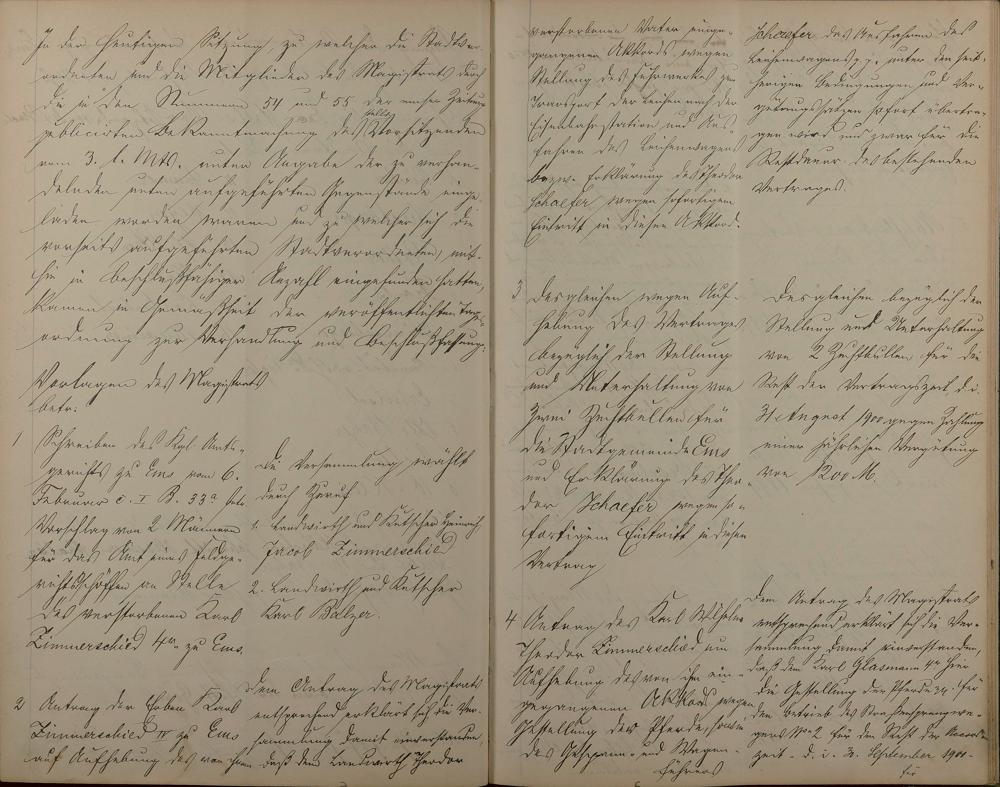 In der heutigen Sitzung, zu welcher die Stadtver-
ordneten und die Mitglieder des Magistrats durch
die in den Nummern 54 und 55 der Emser Zeitung
publicirten Bekanntmachung des Vorsitzenden
vom 3. l. Mts. unter Angabe der zu verhan-
delnden unten aufgeführten Gegenstände einge-
laden worden waren und zu welcher sich die
vorseits aufgeführten Stadtverordneten, mit-
hin in beschlußfähiger Anzahl eingefunden hatten,
kamen in Gemäßheit der veröffentlichten Tages-
ordnung zur Verhandlung und Beschlußfassung:
Vorlagen des Magistrats
betr:
1 Schreiben des Kgl Amts-
gerichts zu Ems vom 6.
Februar c. I B. 33a betr.
Vorschlag von 2 Männern
für das Amt eines Feldge-
richtsschöffen an Stelle
des verstorbenen Karl
Zimmerschied 4r zu Ems.
Die Versammlung wählt
durch Zuruf
1. Landwirth und Kutscher Heinrich
Jacob Zimmerschied
2. Landwirth und Kutscher
Karl Balzer.
2 Antrag der Erben Karl
Zimmerschied IV zu Ems
auf Aufhebung des von ihrem
Dem Antrag des Magistrats
entsprechend erklärt sich die Ver-
sammlung damit einverstanden,
daß dem Landwirth Theodor
verstorbenen Vater einge-
gangenen Akkords wegen
Stellung des Fuhrwerks zum
Transport der Leichen nach der
Eisenbahnstation und Aus-
fahren des Leichenwagens
bezw. Erklärung des Theodor
Schaefer wegen sofortigem
Eintritt in diesen Akkord.
Schaefer das Ausfahren des
Leichenwagens p.p. unter den seit-
herigen Bedingungen und Ver-
gütungssätzen sofort übertra-
gen wird und zwar für die
Restdauer des bestehenden
Vertrages.
3 Desgleichen wegen Auf-
hebung des Vertrages
bezüglich der Stellung
und Unterhaltung von
zwei Zuchtbullen für
die Stadtgemeinde Ems
und Erklärung des Theo-
dor Schaefer wegen so-
fortigem Eintritt in diesen
Vertrag
Desgleichen bezüglich der
Stellung und Unterhaltung
von 2 Zuchtbullen für den
Rest der Vertragszeit, d. i.
31 August 1900 gegen Zahlung
einer jährlichen Vergütung
von 1200 M.
4 Antrag des Karl Wilhelm
Theodor Zimmerschied um
Aufhebung des von ihm ein-
gegangenen Akkords wegen
Gestellung der Pferde, sowie
des Gespann- und Wagen-
führers
Dem Antrag des Magistrats
entsprechend erklärt sich die Ver-
sammlung damit einverstanden,
daß dem Karl Glasmann hier
die Gestellung der Pferde pp. für
den Betrieb des Straßensprengwa-
gens No 2 für den Rest der Accord-
zeit - d. i. 30. September 1901 -
für